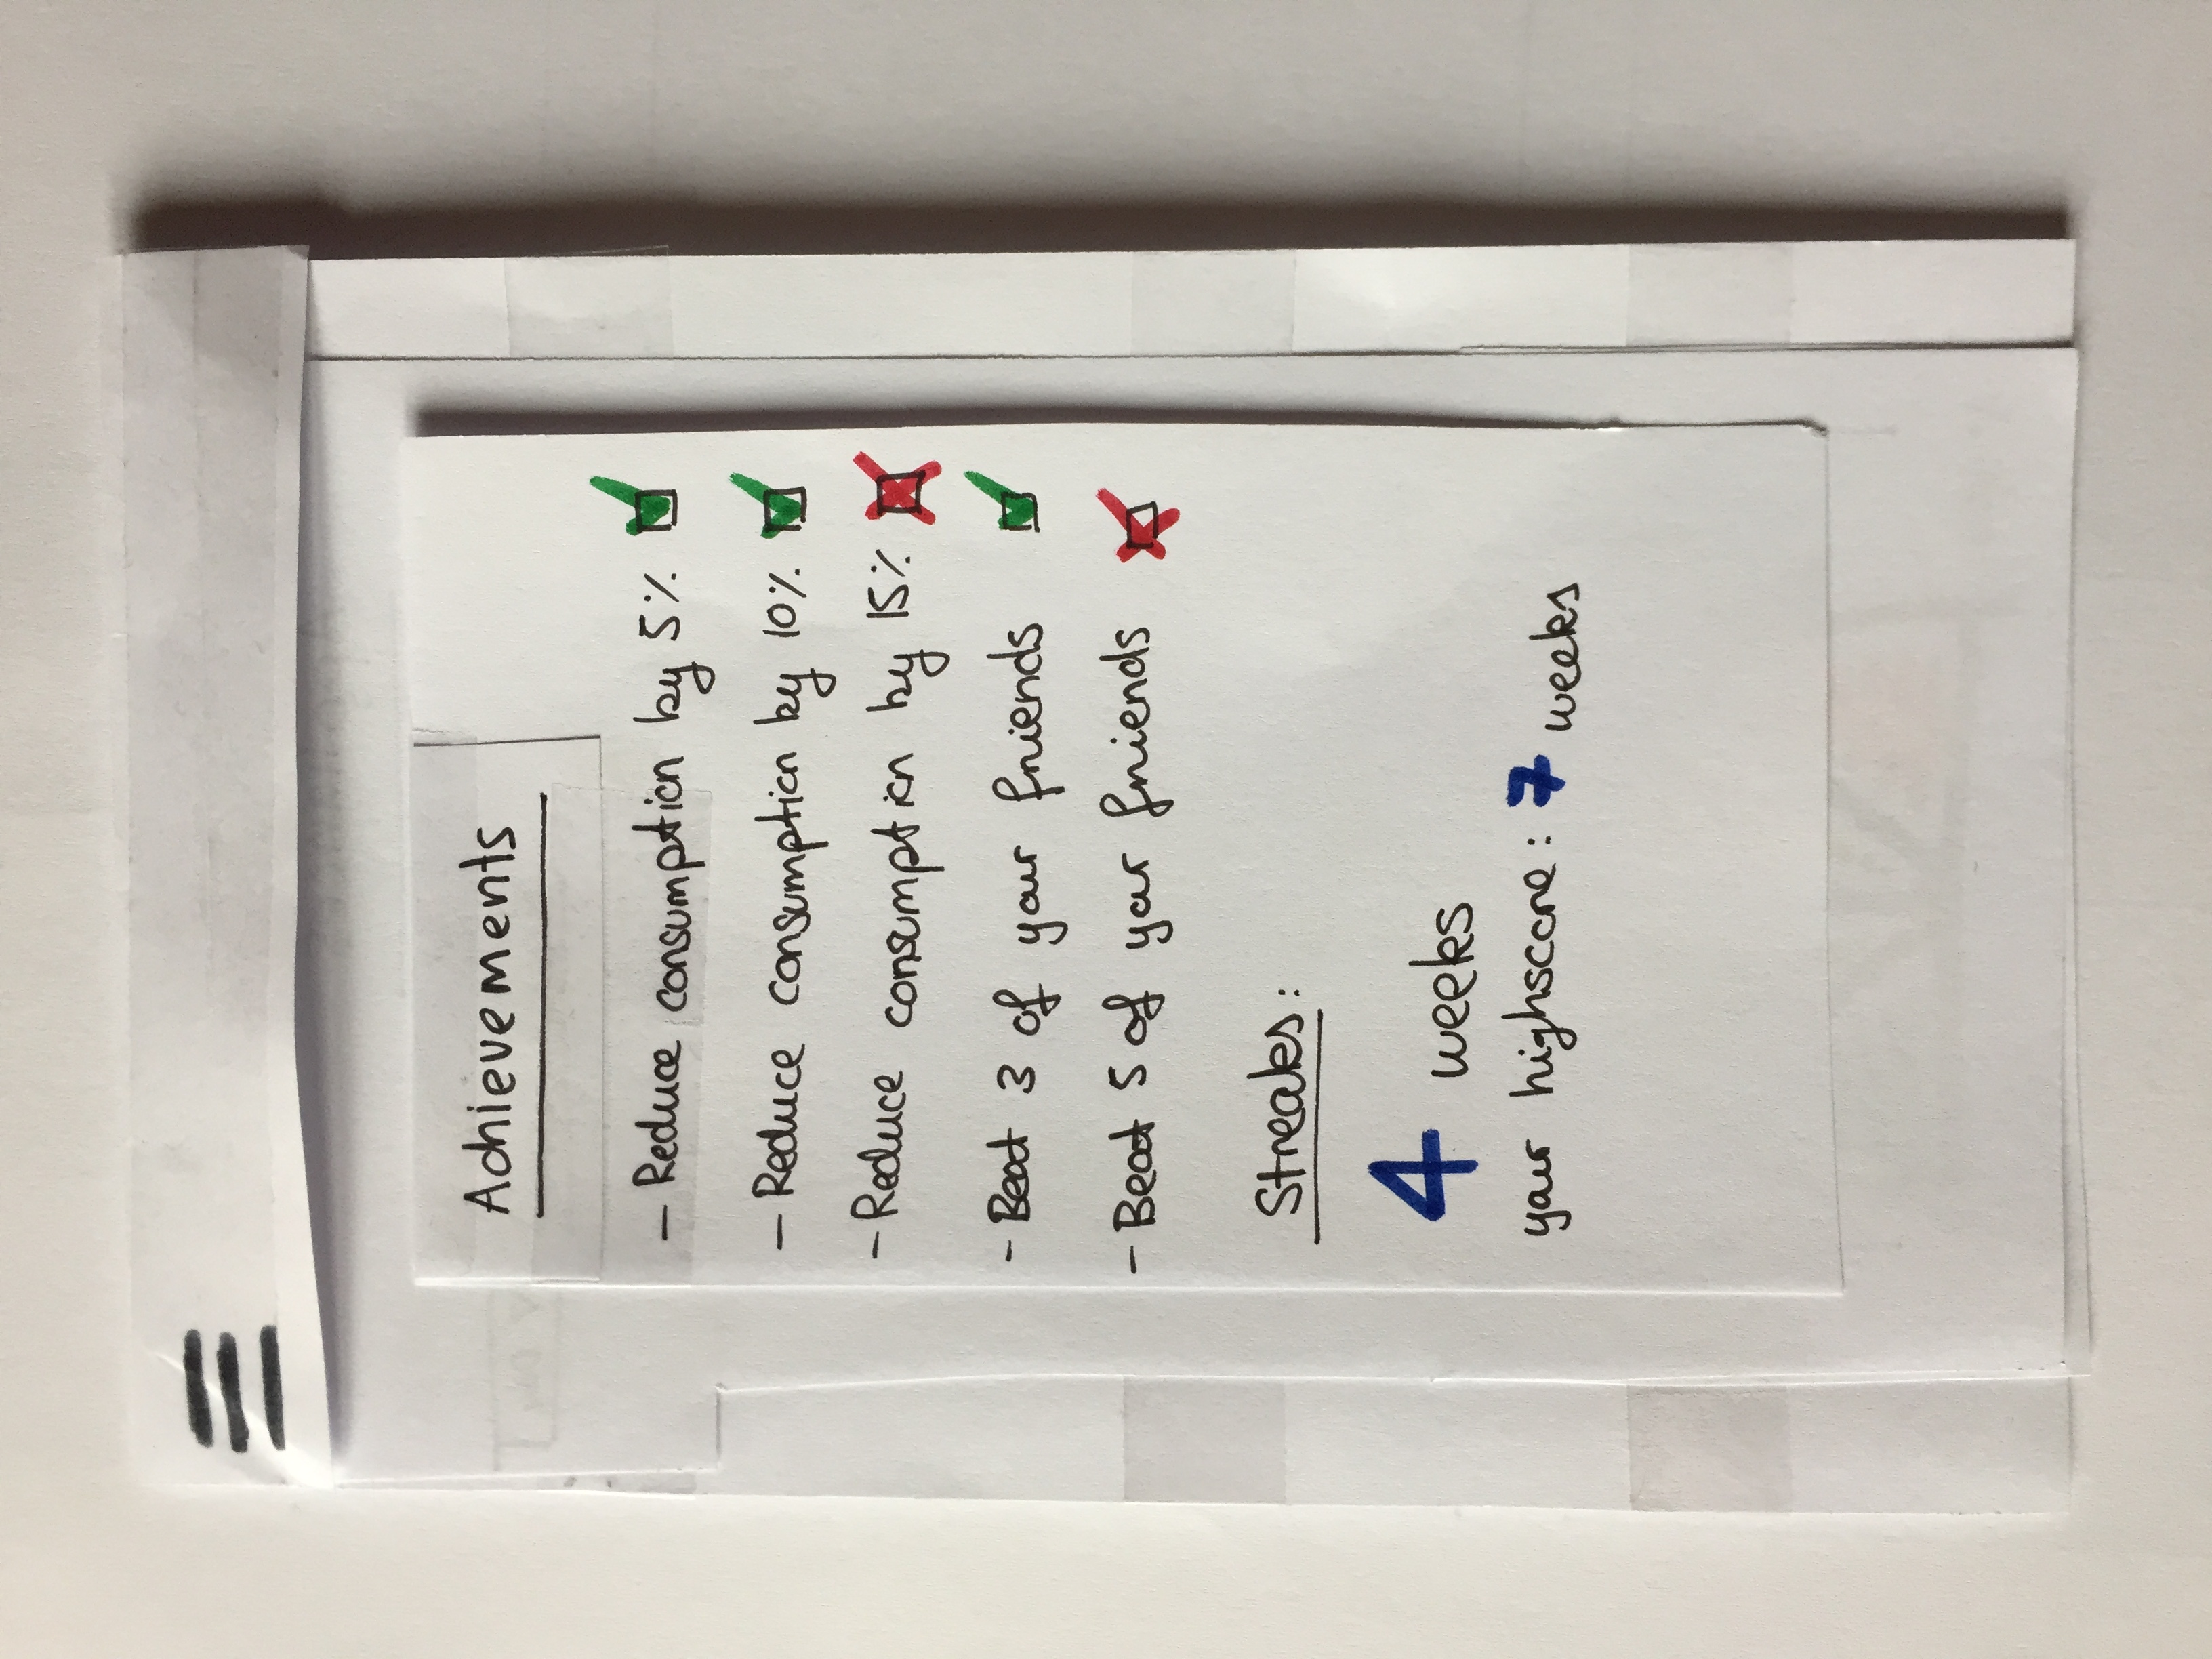 Achievements
- Reduce consumption by 5%
- Reduce consumption by 10%
- Reduce consumption by 15%
- Beat 3 of your friends
- Beat 5 of your friends
Streaks:
4 weeks
your highscore: 7 weeks